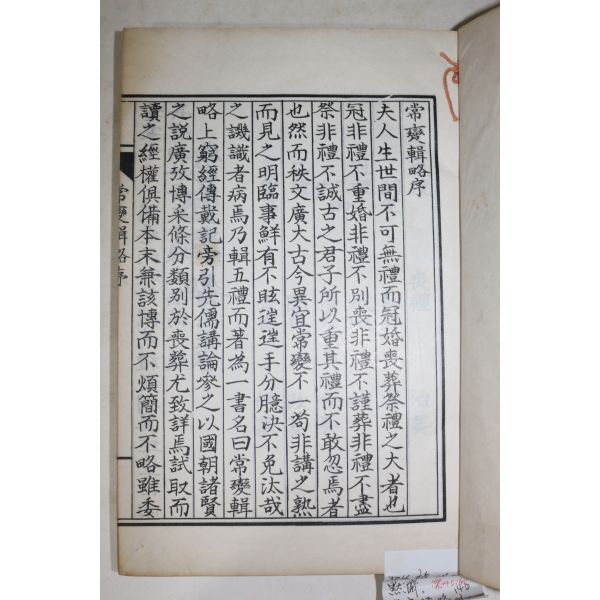 常變輯略序
夫人生世間不可無禮而冠婚喪葬祭禮之大者也
冠非禮不重婚非禮不別喪非禮不謹葬非禮不盡
祭非禮不誠古之君子所以重其禮而不敢忽焉者
也然而秩文廣大古今異宜常變不一苟非講之熟
而見之明臨事鮮有不眩逬手分臆決不免汰哉
之譏識者病焉乃輯五禮而著為一書名曰常變輯
略上窮經傳戴記旁引先儒講論參之以國朝諸賢
之說廣攷博采條分類別於喪葬尤致詳焉試取而
讀之經權俱備本末兼該博而不煩簡而不略雖委
常變輯略序